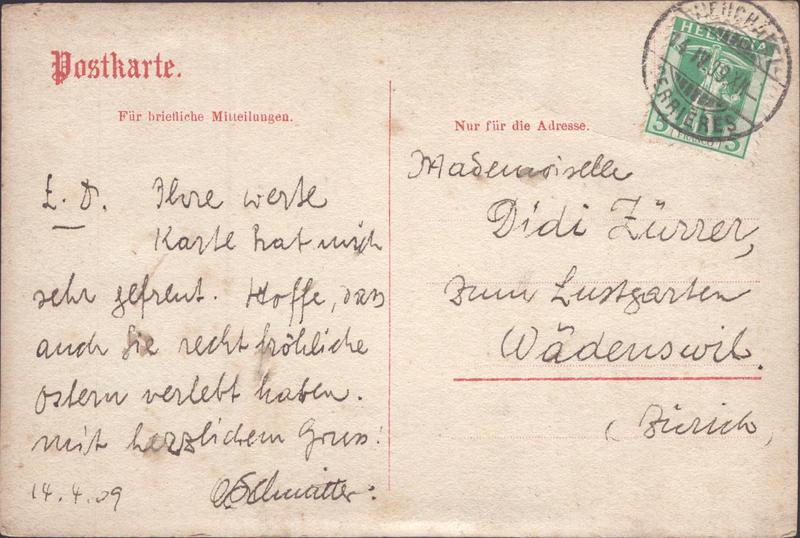 Postkarte.
Für briefliche Mitteilungen.
L. D. Ihre werte
Karte hat mich
sehr gefreut. Hoffe, dass
auch Sie recht fröhliche
Ostern verlebt haben.
mit herzlichem Gruss:
14.4.09
Nur für die Adresse.
Mademoiselle
Didi Zürrer,
zum Lustgarten
Wädenswil.
(Zürich)
HELVETIA
5 FRANCO 5
SERRIÈRES